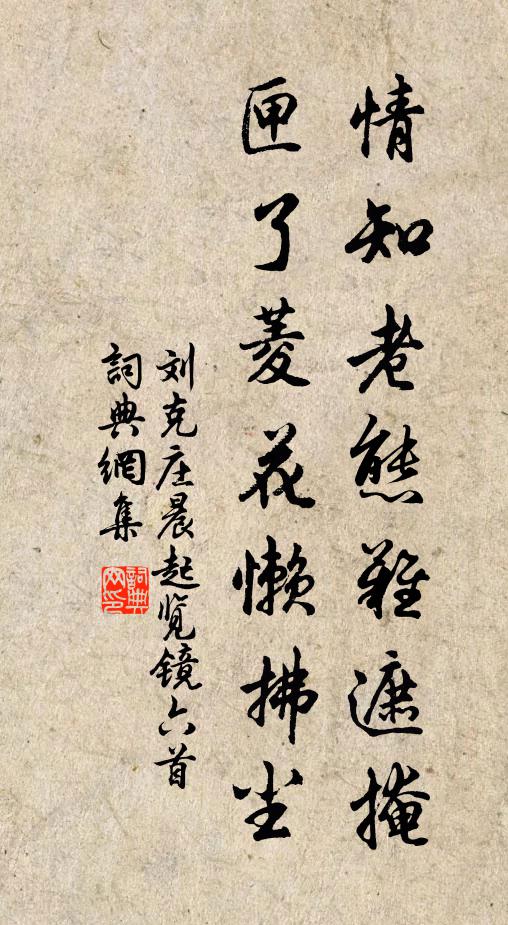 情知老態難遮掩
匣了菱花懒拂尘
刘克庄晨起览镜六首
詞典網集
詞典
网印